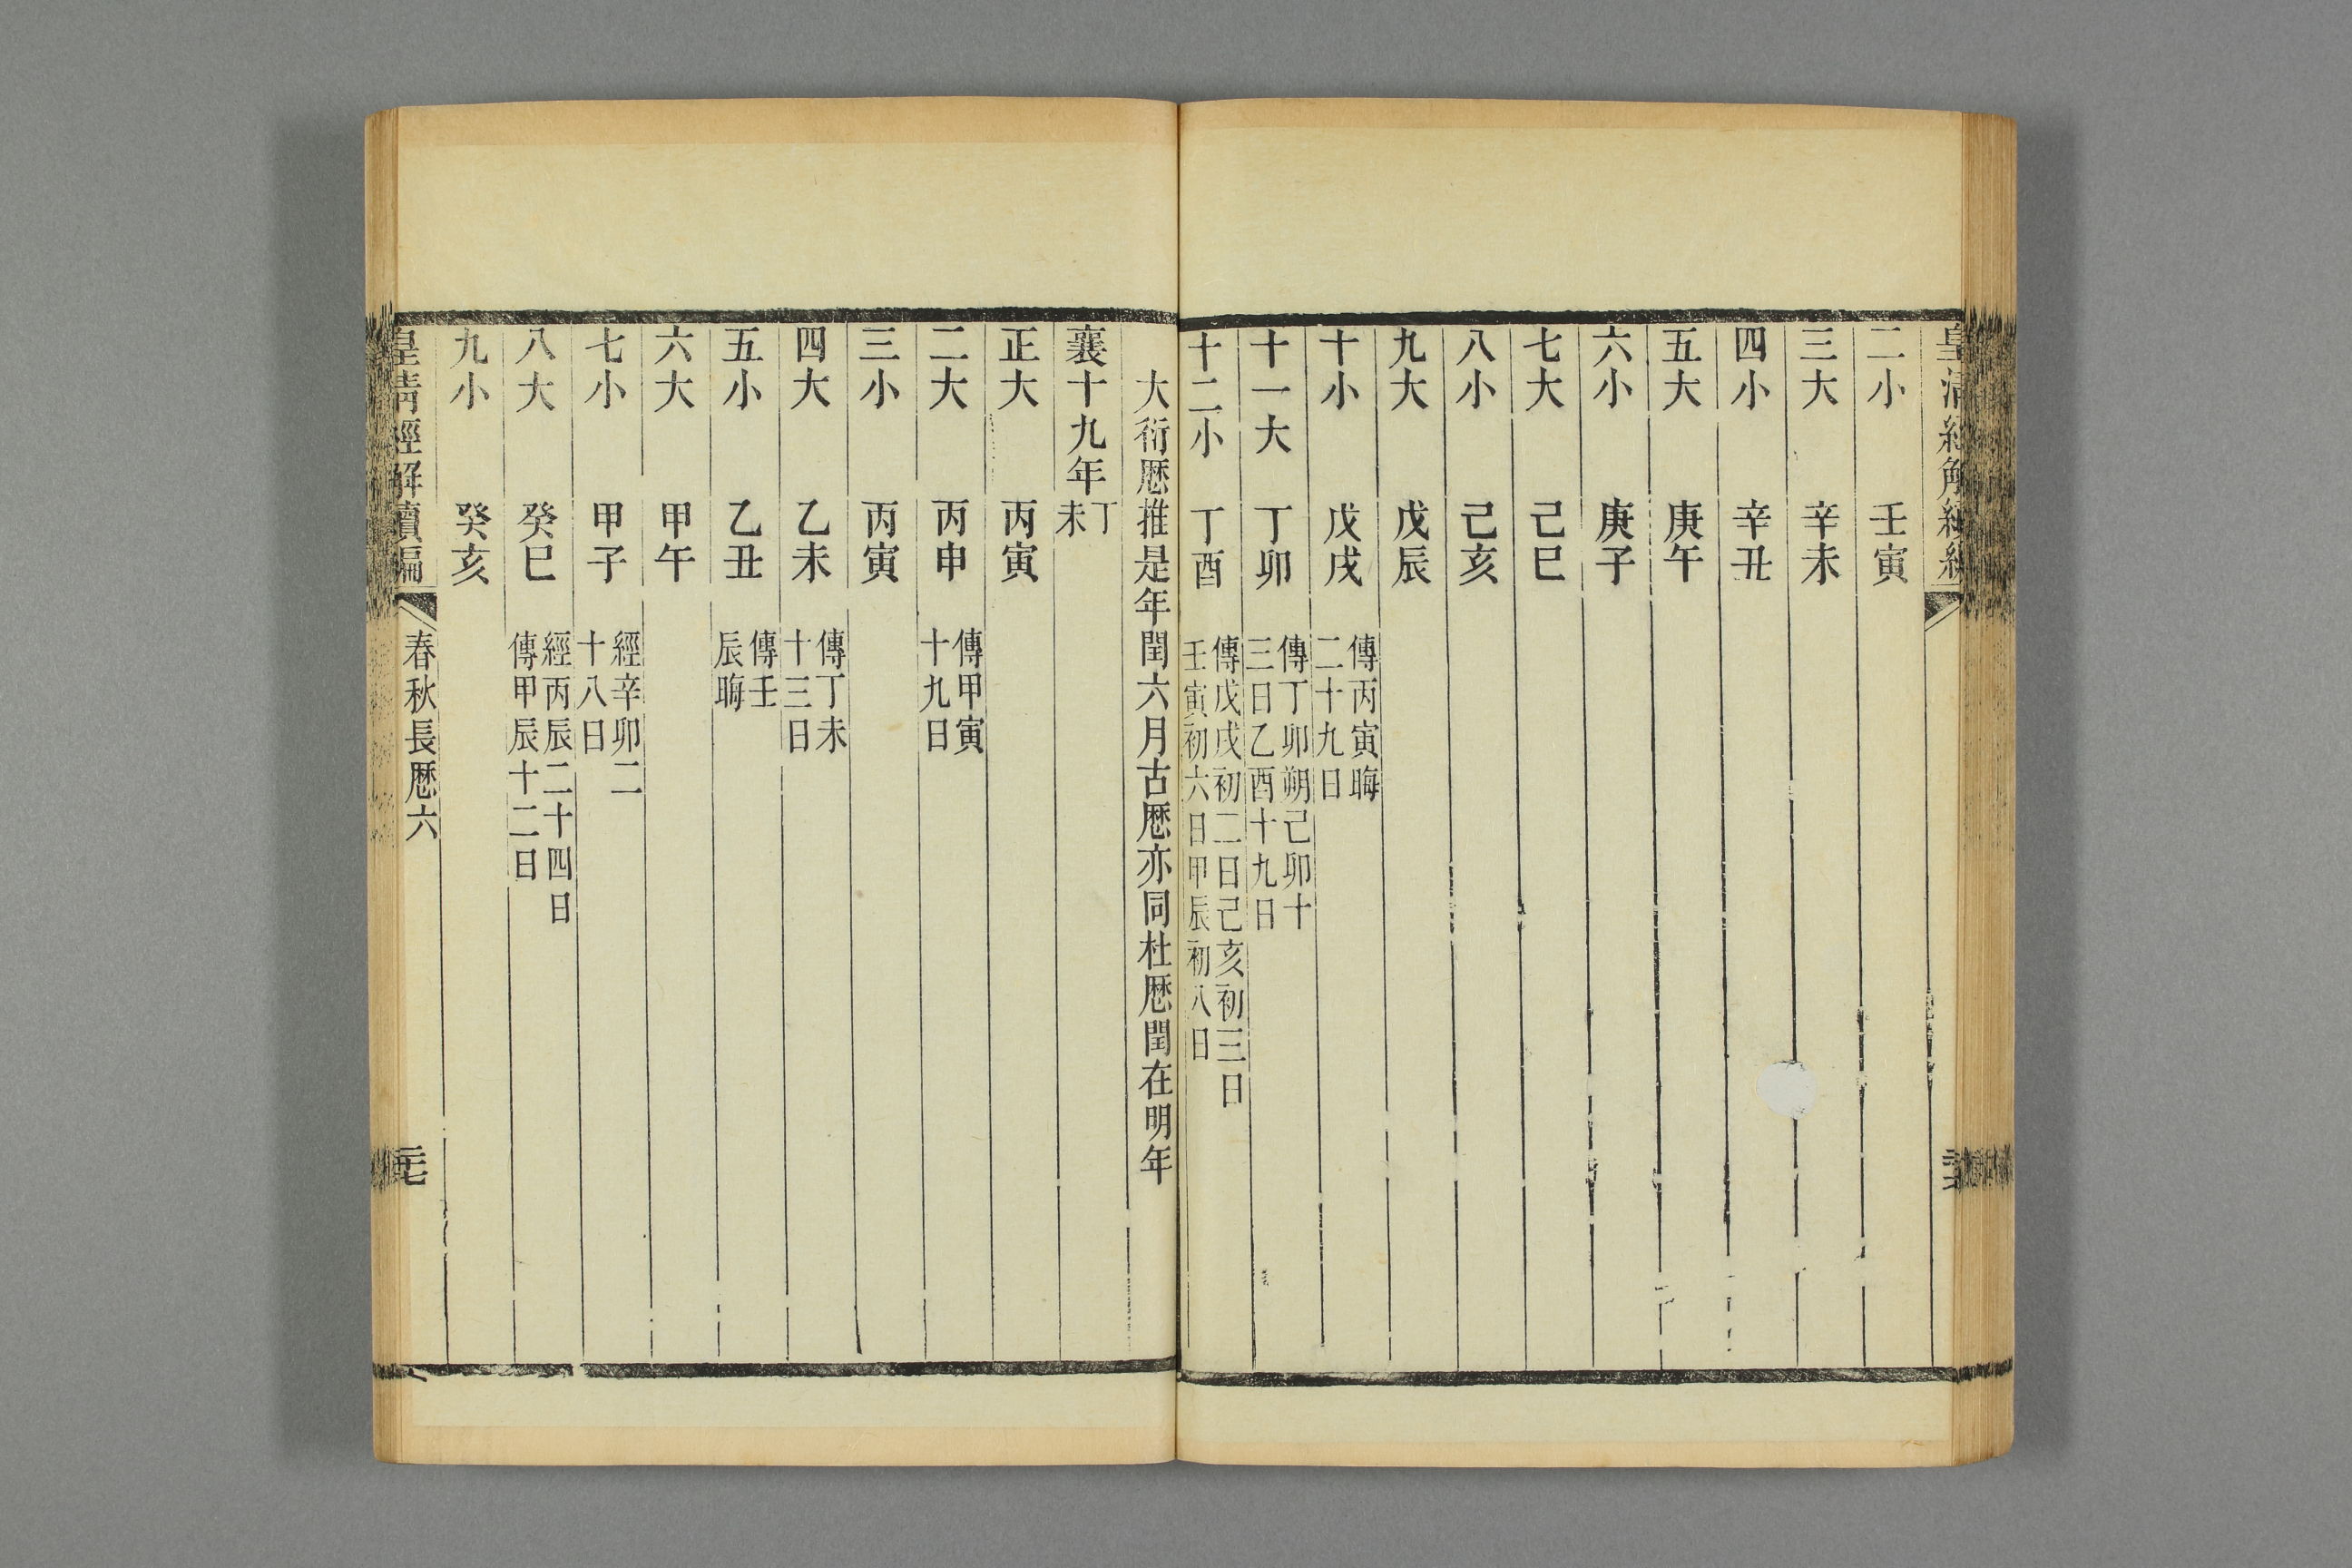 皇清經解續編
二小　壬寅
三大　辛未
四小　辛丑
五大　庚午
六小　庚子
七大　己巳
八小　己亥
九大　戊辰
十小　戊戌　傳丙寅晦
二十九日
十一大　丁卯　傳丁卯朔己卯十
三日乙酉十九日
十二小　丁酉　傳戊戌初二日己亥初三日
壬寅初六日甲辰初八日
大衍厯推是年閏六月古厯亦同杜厯閏在明年
襄十九年丁未
正大　丙寅
二大　丙申　傳甲寅
十九日
三小　丙寅
四大　乙未　傳丁未
十三日
五小　乙丑　傳壬
辰晦
六大　甲午
七小　甲子　經辛卯二
十八日
八大　癸巳　經丙辰二十四日
傳甲辰十二日
九小　癸亥
皇清經解續編　春秋長厯六